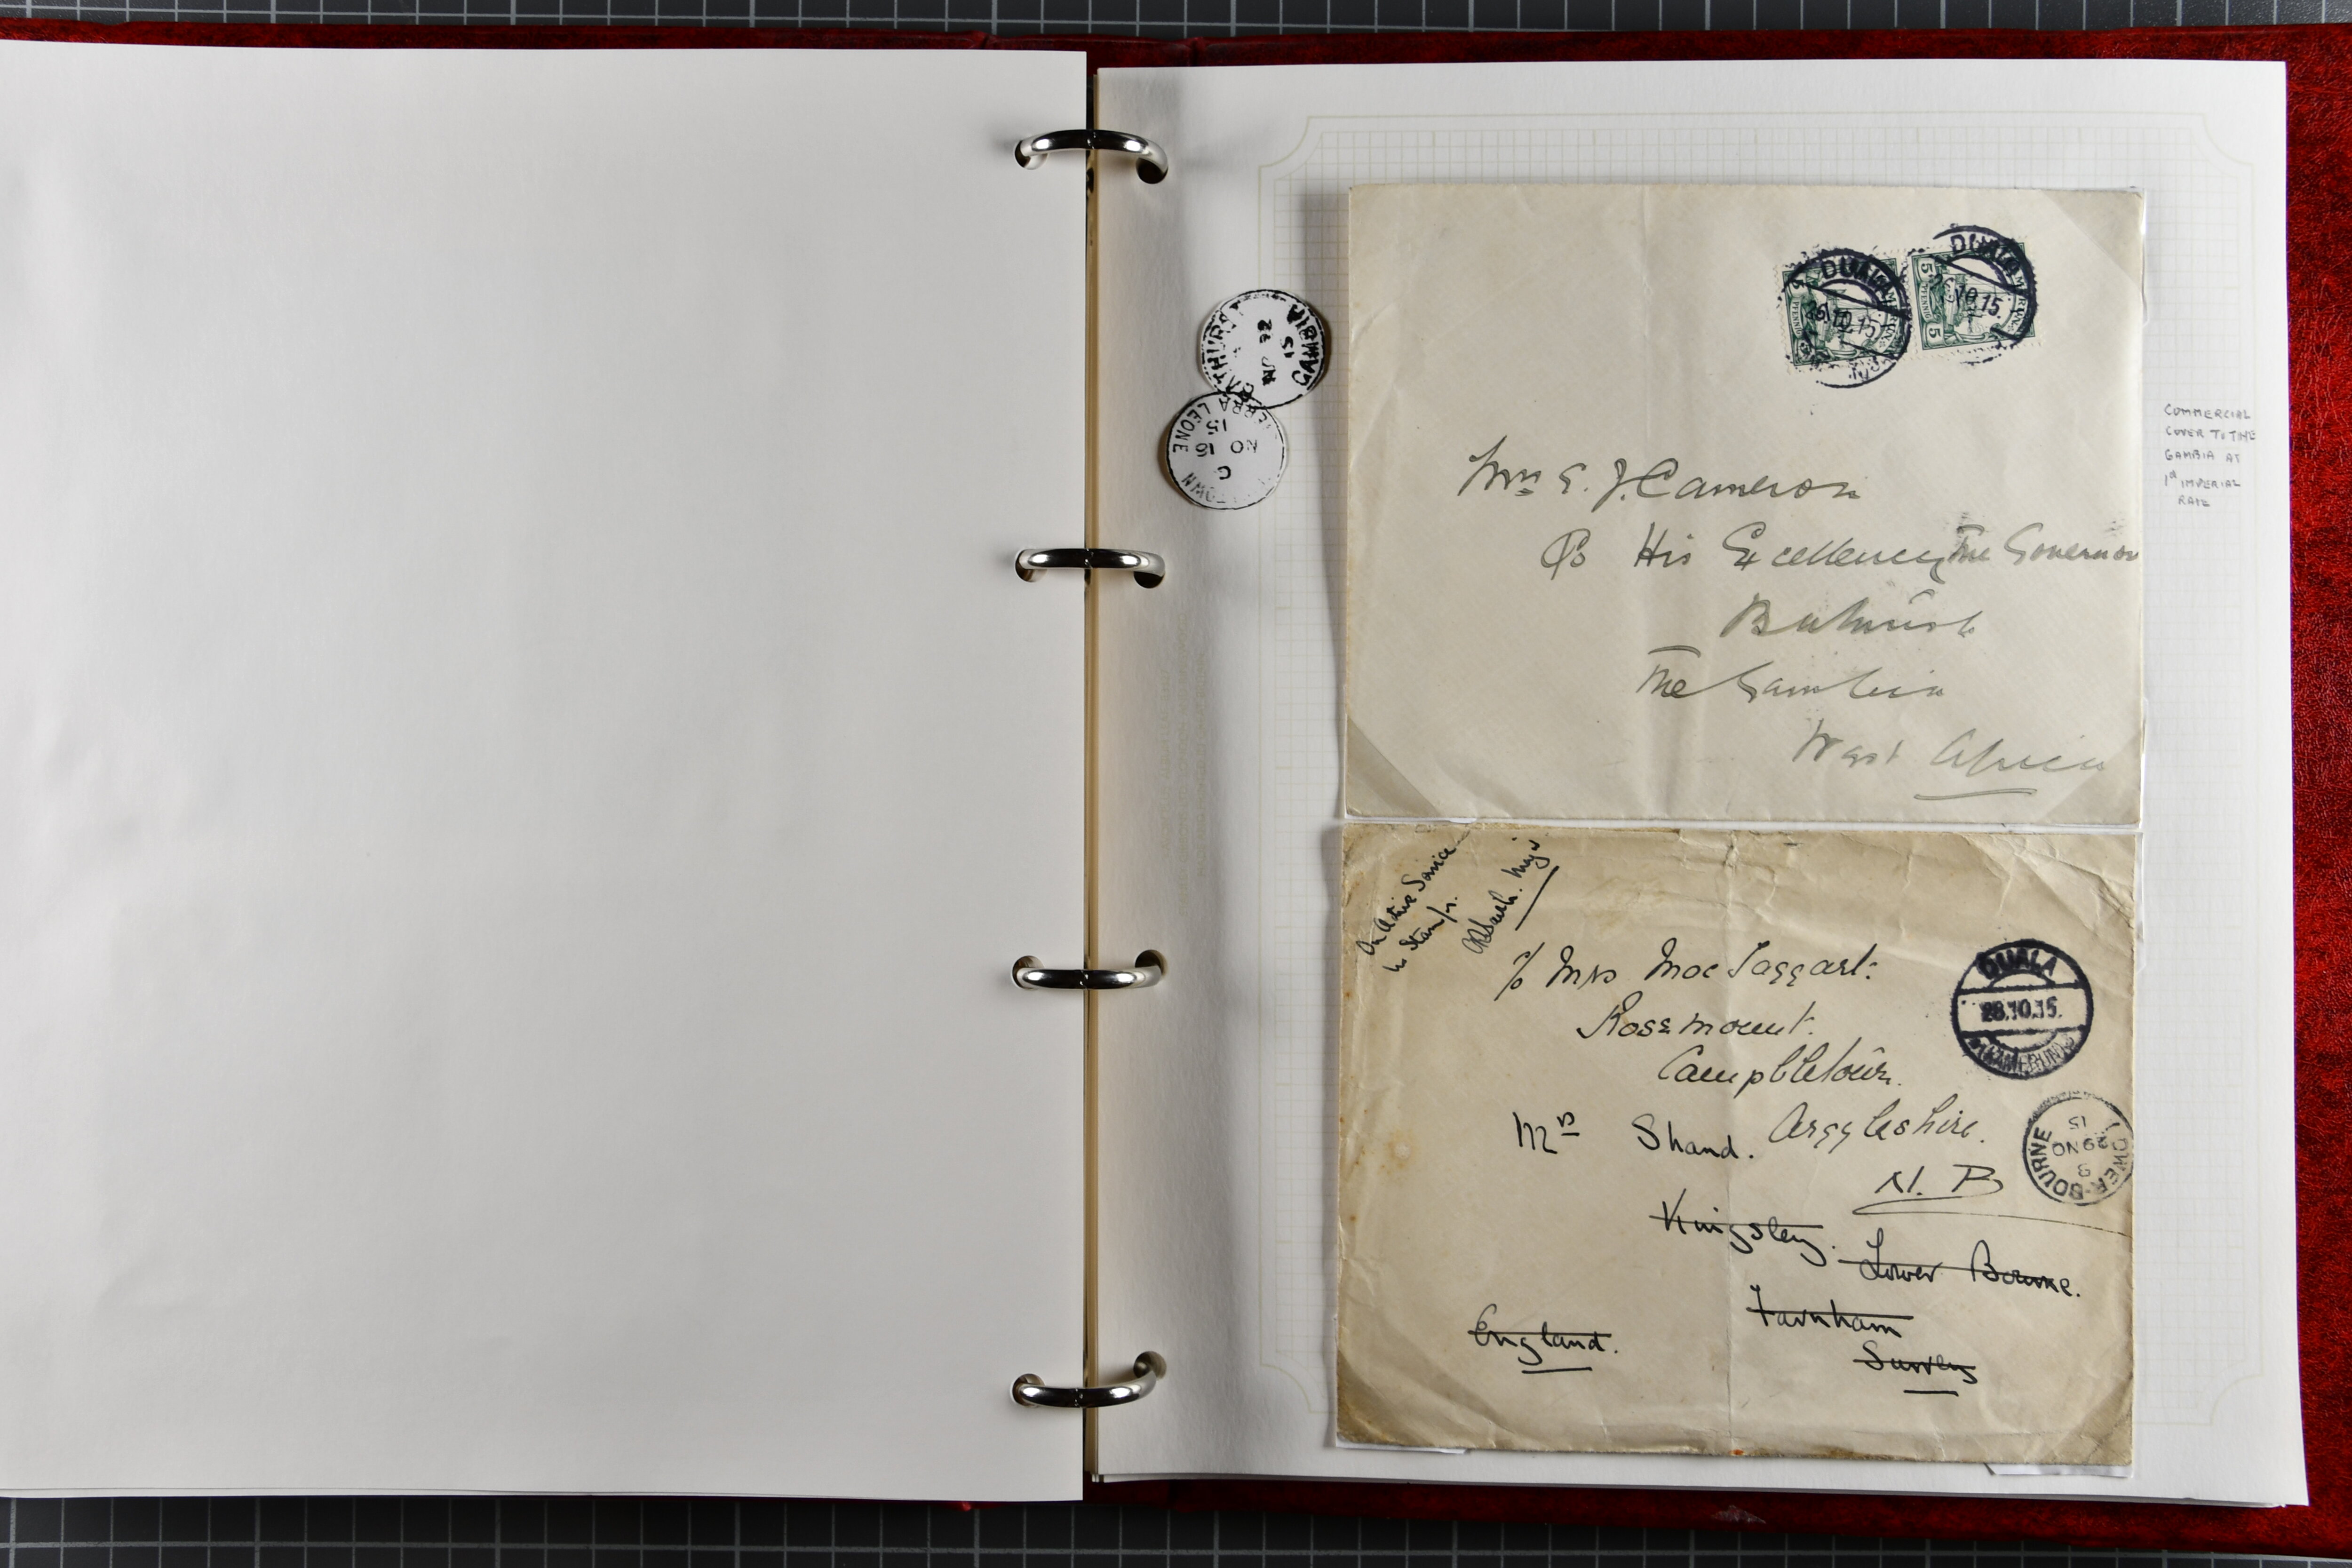 BATHURST
GAMBIA
15
SIERRA LEONE
15
NO 16
C
DUALA
DUALA
5
5
PFENNIG
10.15
COMMERCIAL
COVER TO THE
GAMBIA AT
1d IMPERIAL
RATE
Mrs E. J. Cameron
C/o His Excellency The Governor
Bathurst
The Gambia
West Africa
On Active Service
No Stamps.
Major
c/o Mrs Mac Taggart.
Rosemount.
Campbletown.
Argyleshire.
N. B
Mrs Shand.
Kingsley.
Lower Bourne.
Farnham
Surrey
England.
DUALA
28.10.15.
KAMERUN
LOWER-BOURNE
8
29 NO
15